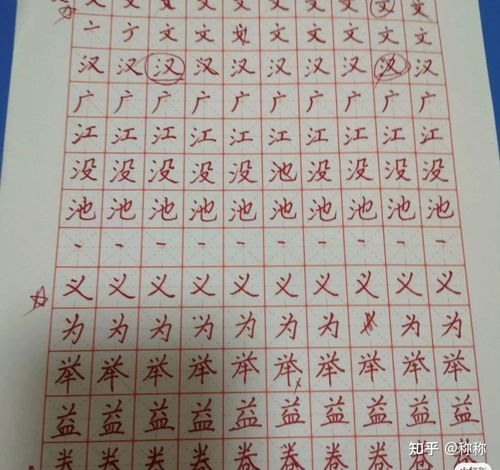 文 文 文 文 文 文 文 文 文 文
亠 文 文 文 文 文 文 文
汉 汉 汉 汉 汉 汉 汉 汉 汉 汉
广 广 广 广 广 广 广 广 广 广
江 江 江 江 江 江 江 江 江 江
没 没 没 没 没 池 没 没 没 没
池 池 池 池 池 池 池 池 池 池
丶 丶 丶 丶 丶 丶 丶 丶 丶 丶
义 义 义 义 义 义 义 义 义 义
为 为 为 为 为 为 为 为 为
举 举 举 举 举 举 举 举 举 举
益 益 益 益 益 益 益 益 益 益
知乎 @称称